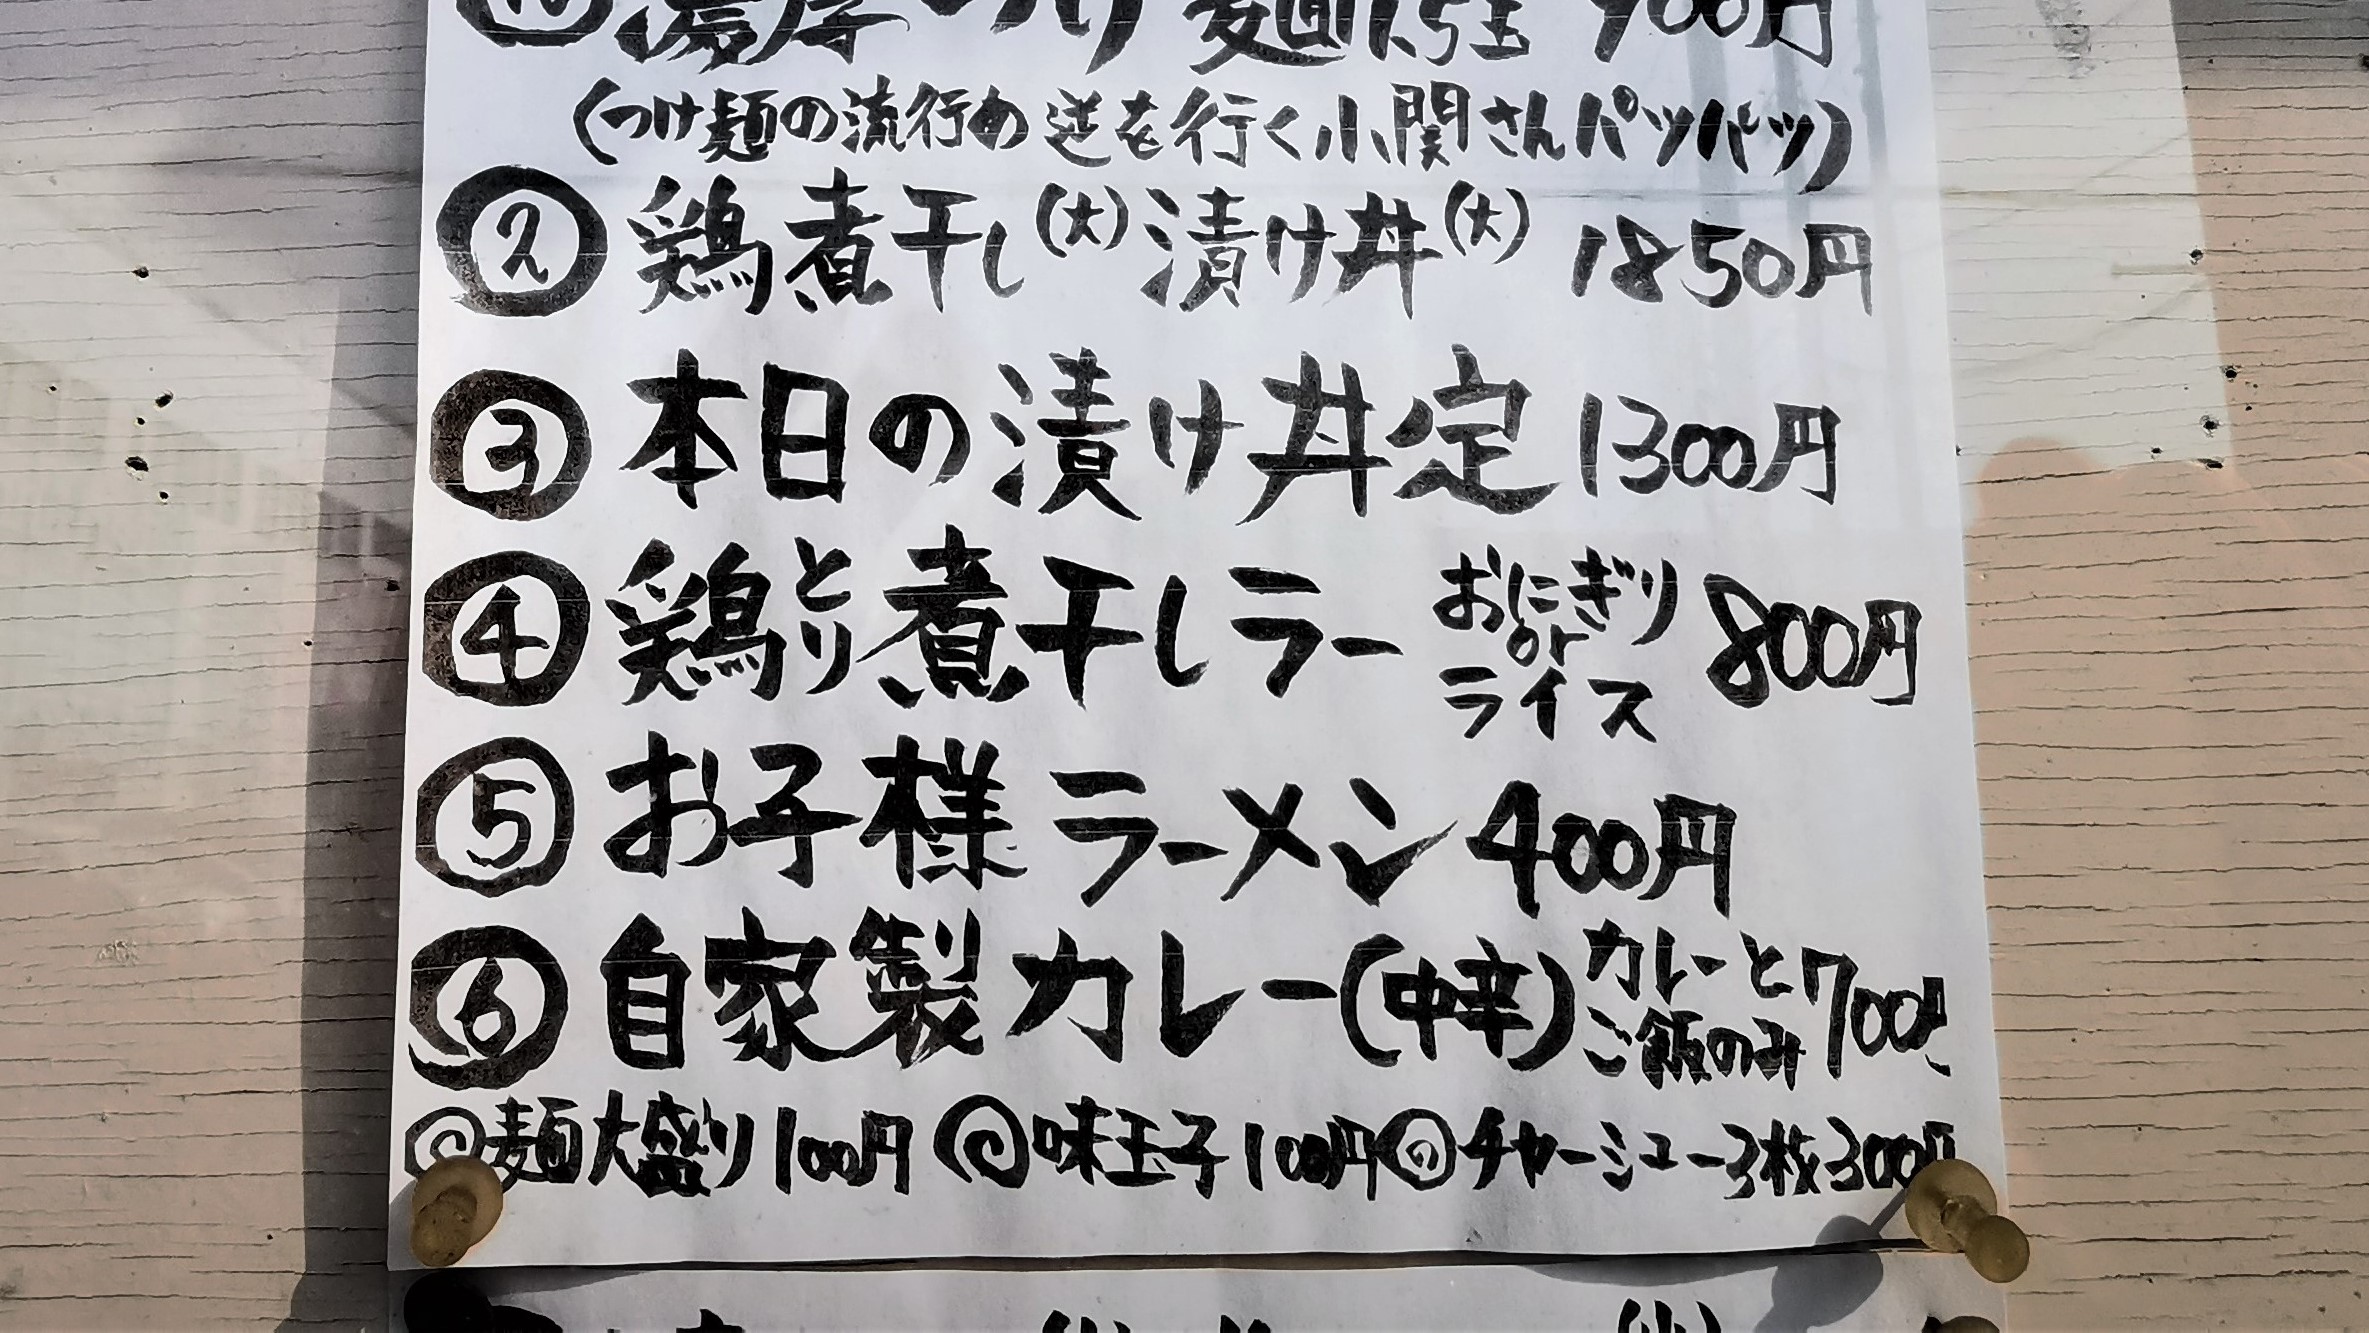 濃厚つけ麺1.5玉 900円
(つけ麺の流行の逆を行く小関さんパツパツ)
② 鶏煮干し(大)漬け丼(大) 1850円
③ 本日の漬け丼定 1300円
④ 鶏とり煮干しラー おにぎりorライス 800円
⑤ お子様ラーメン 400円
⑥ 自家製カレー(中辛)カレーとご飯のみ 700円
麺大盛り100円 味玉子100円 チャーシュー3枚300円